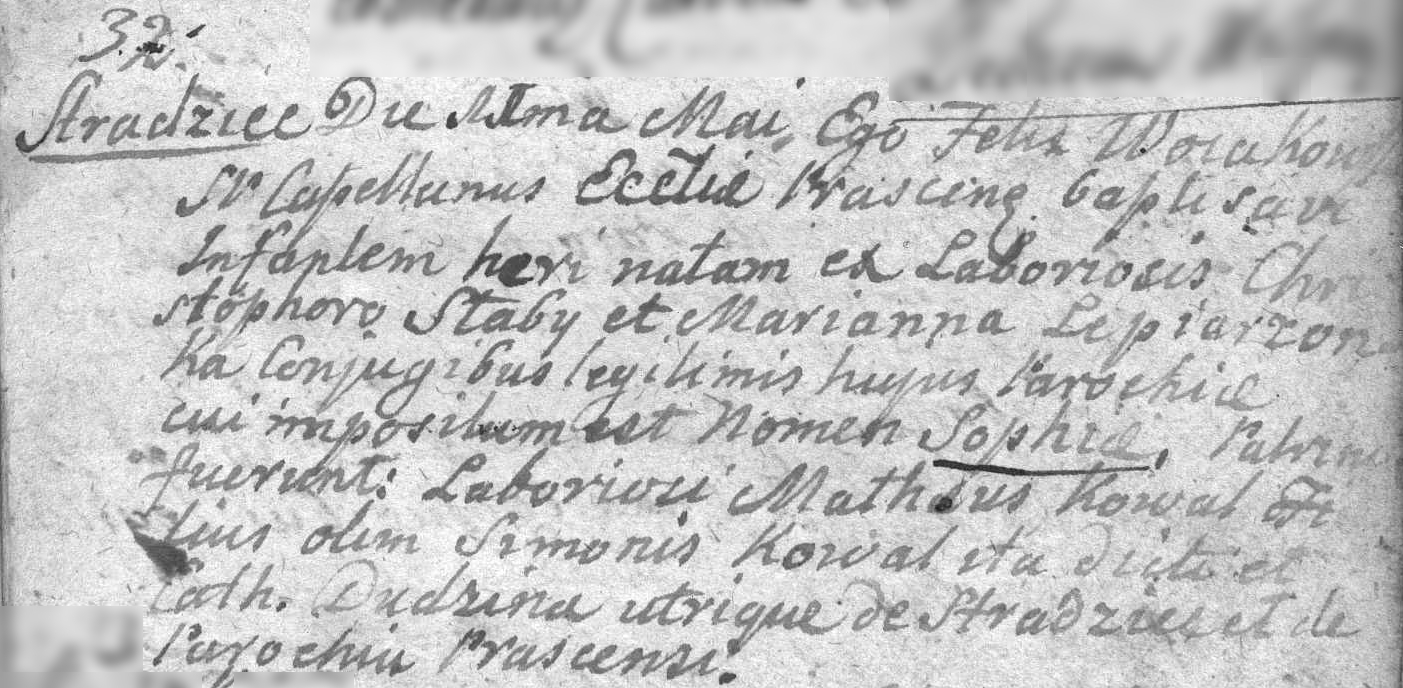 32.
Stradziec Die 11ma Mai, Ego Felix Woiakows
SR Capellanus Eccliæ Prascens. baptisavi
Infantem heri natam ex Laboriosis Chri
stophoro Staby et Marianna Lepiarzon
ka Conjugibus legitimis hujus Parochiæ
cui impositum est Nomen Sophiæ, Patrini
fuerunt: Laboriosi Mathæus Kowal Fi
lius olim Simonis Kowal ita dicti et
Cath. Dudzina utrique de Stradziec et de
Parochia Prascensi.